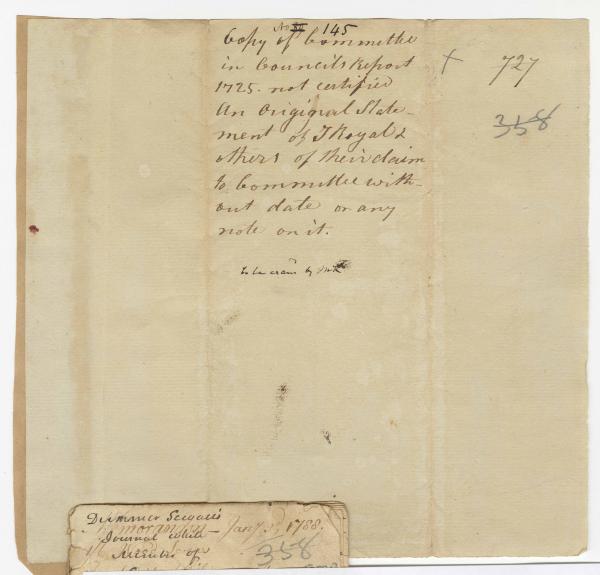 No 145
Copy of Committee
in Councils Report
1725. not certified
An Original State-
ment of J Royal &
others of their claim
to Committee with-
out date or any
note on it.
to be exam by
+ 727
358
Dummer Sewall's
Journal while
Jany 1788.
Member of
358